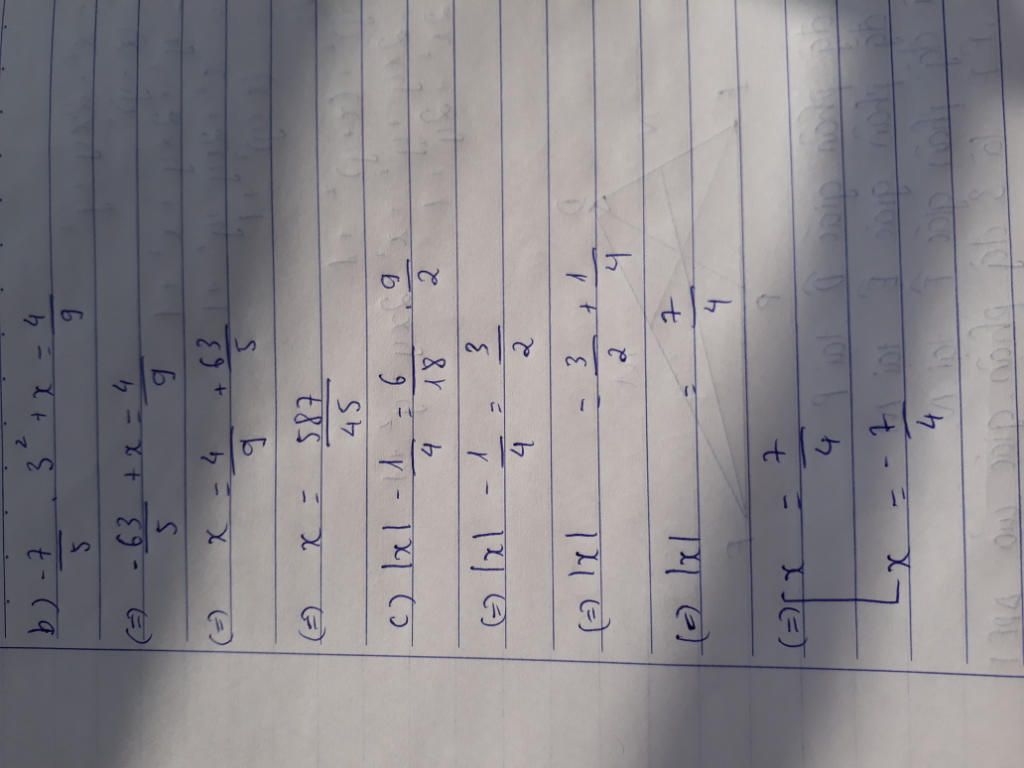 b) -7/5 . 3² + x = 4/9
(=) -63/5 + x = 4/9
(=) x = 4/9 + 63/5
(=) x = 587/45
c) |x| - 1/4 = 6/18 . 9/2
(=) |x| - 1/4 = 3/2
(=) |x| - 3/2 + 1/4
(=) |x| = 7/4
(=) [x = 7/4
x = -7/4